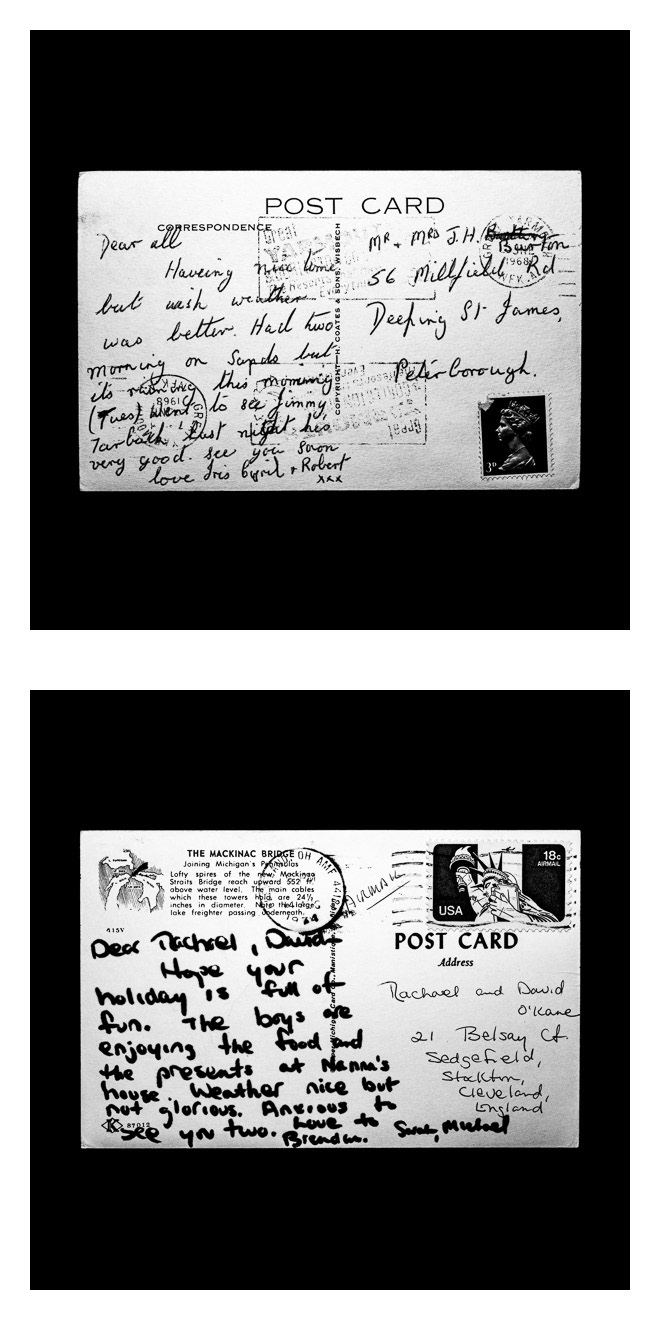 POST CARD
CORRESPONDENCE
Dear all
Haveing nice time
but wish weather
was better. Had two
morning on Sands but
its raining this morning
(Tues) Went to see Jimmy
Tarbuck last night his
very good. see you soon
love Iris Cyril + Robert
xxx
COPYRIGHT H. COATES & SONS, WISBECH
Great
GREAT YARMOUTH
JNE
1968
Mr + Mrs J.H. Burton
56 Millfield Rd
Deeping St James,
Peterborough.
3D
THE MACKINAC BRIDGE
Joining Michigan's Peninsulas
Lofty spires of the new Mackinac
Straits Bridge reach upward 552 ft.
above water level. The main cables
which these towers hold are 24½
inches in diameter. Note the large
lake freighter passing underneath.
415V
OH AMF
18c
AIRMAIL
USA
AIRMAIL
POST CARD
Address
Dear Rachael, David
Hope your
holiday is full of
fun. The boys are
enjoying the food and
the presents at Nanna's
house. Weather nice but
not glorious. Anxious to
see you two. Love to
Brendan. Sarah, Michael
K 87012
Rachael and David
O'Kane
21 Belsay Ct.
Sedgefield,
Stockton,
Cleveland,
England